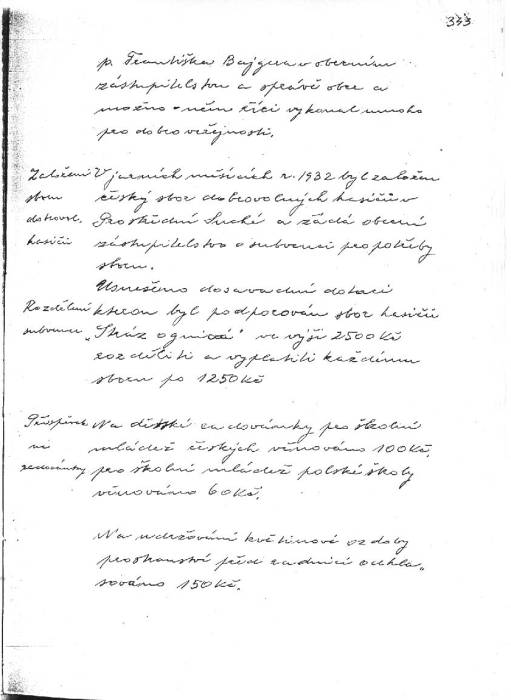 343
p. Františka Bajgera v obecním
zastupitelstvu a správě obce a
možno o něm říci vykonal mnoho
pro dobro veřejnosti.
Založení
sboru
dobrovol.
hasičů
V jarních měsících r. 1932 byl založen
český sbor dobrovolných hasičů v
Prostřední Suché a žádá obecní
zastupitelstvo o subvenci pro potřeby
sboru.
Rozdělení
subvence
Usneseno dosavadní dotaci
kterou byl podporován sbor hasičů
„Straż ogniowa" ve výši 2500 Kč
rozděliti a vyplatiti každému
sboru po 1250 Kč
Příspěvek
na
radovánky
Na dětské radovánky pro školní
mládež českých věnováno 100 Kč,
pro školní mládež polské školy
věnováno 60 Kč.
Na udržování květinové ozdoby
prostranství před radnicí odhla„
sováno 150 Kč.